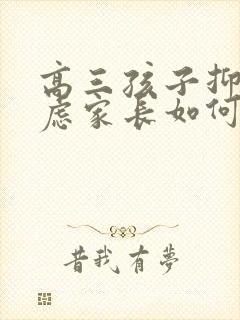 高三孩子抑
虑家长如何
昔我有梦